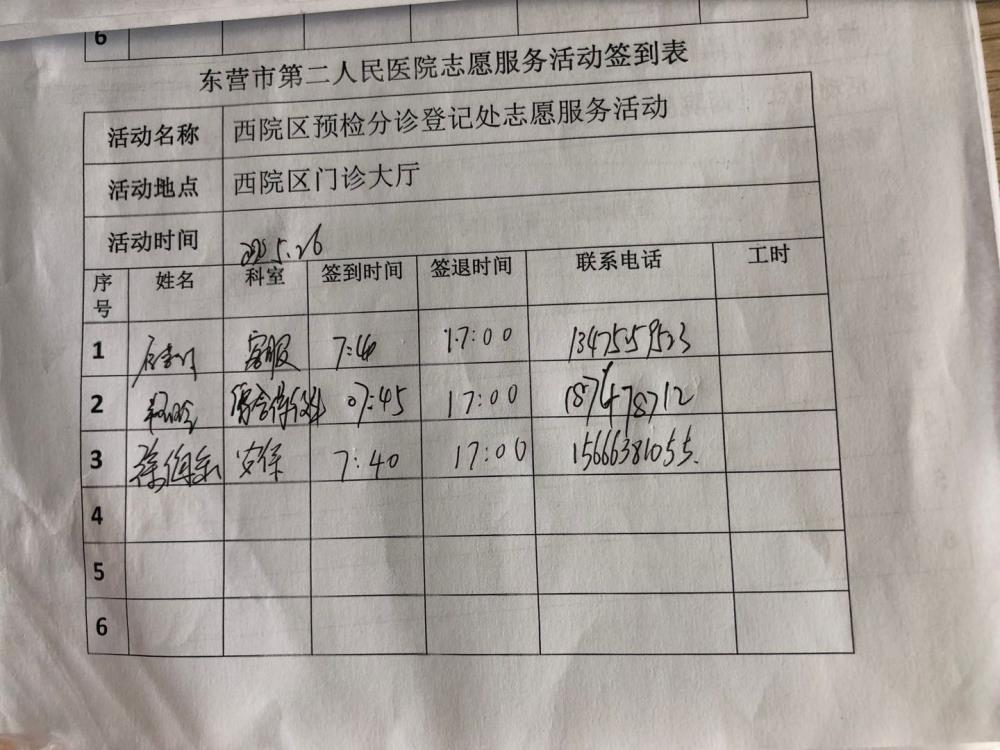 6
东营市第二人民医院志愿服务活动签到表
活动名称 西院区预检分诊登记处志愿服务活动
活动地点 西院区门诊大厅
活动时间 5.26
序号 姓名 科室 签到时间 签退时间 联系电话 工时
1 客服 17:00
2 07:45 17:00
3 安保 7:40 17:00
4
5
6